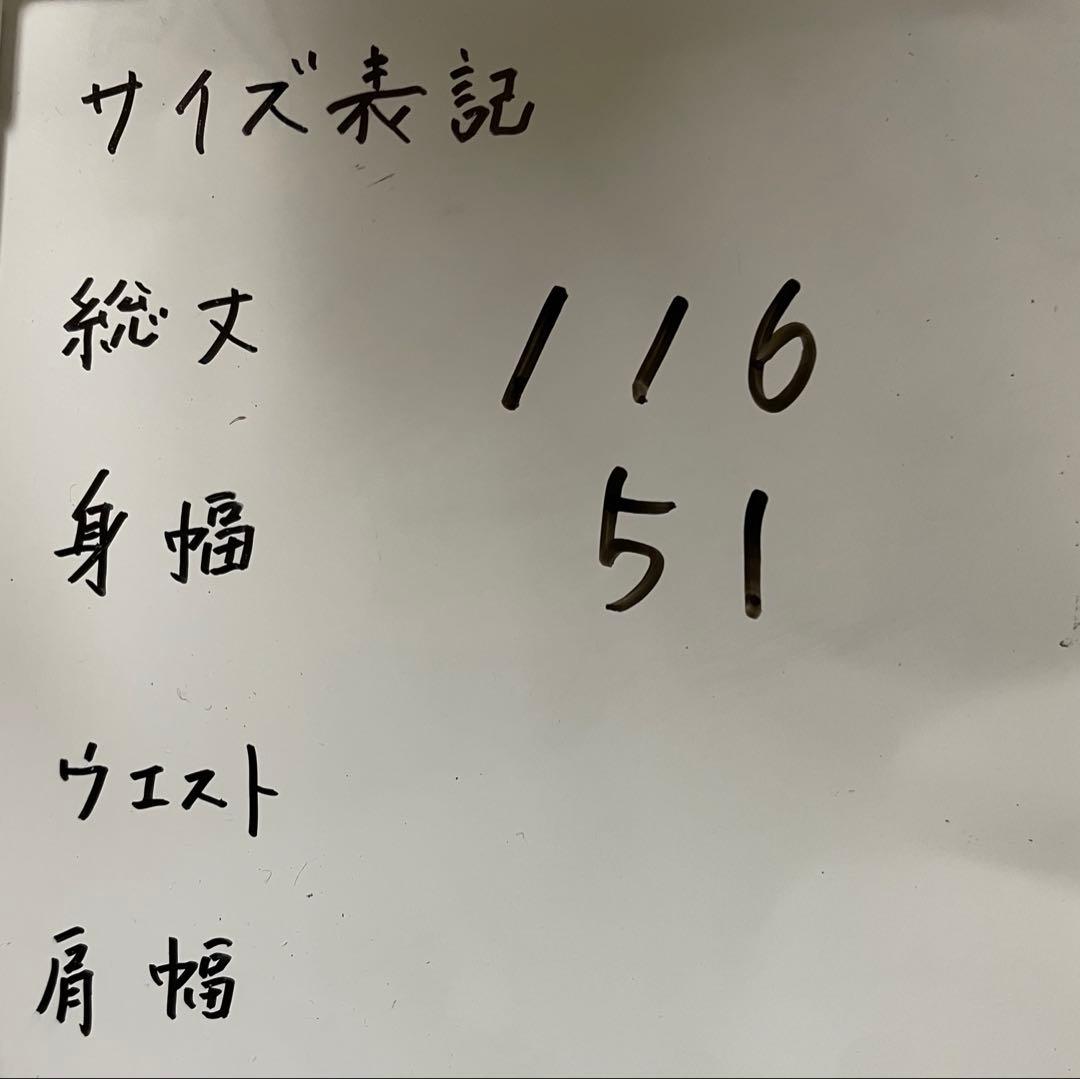 サイズ表記
総丈 116
身幅 51
ウエスト
肩幅